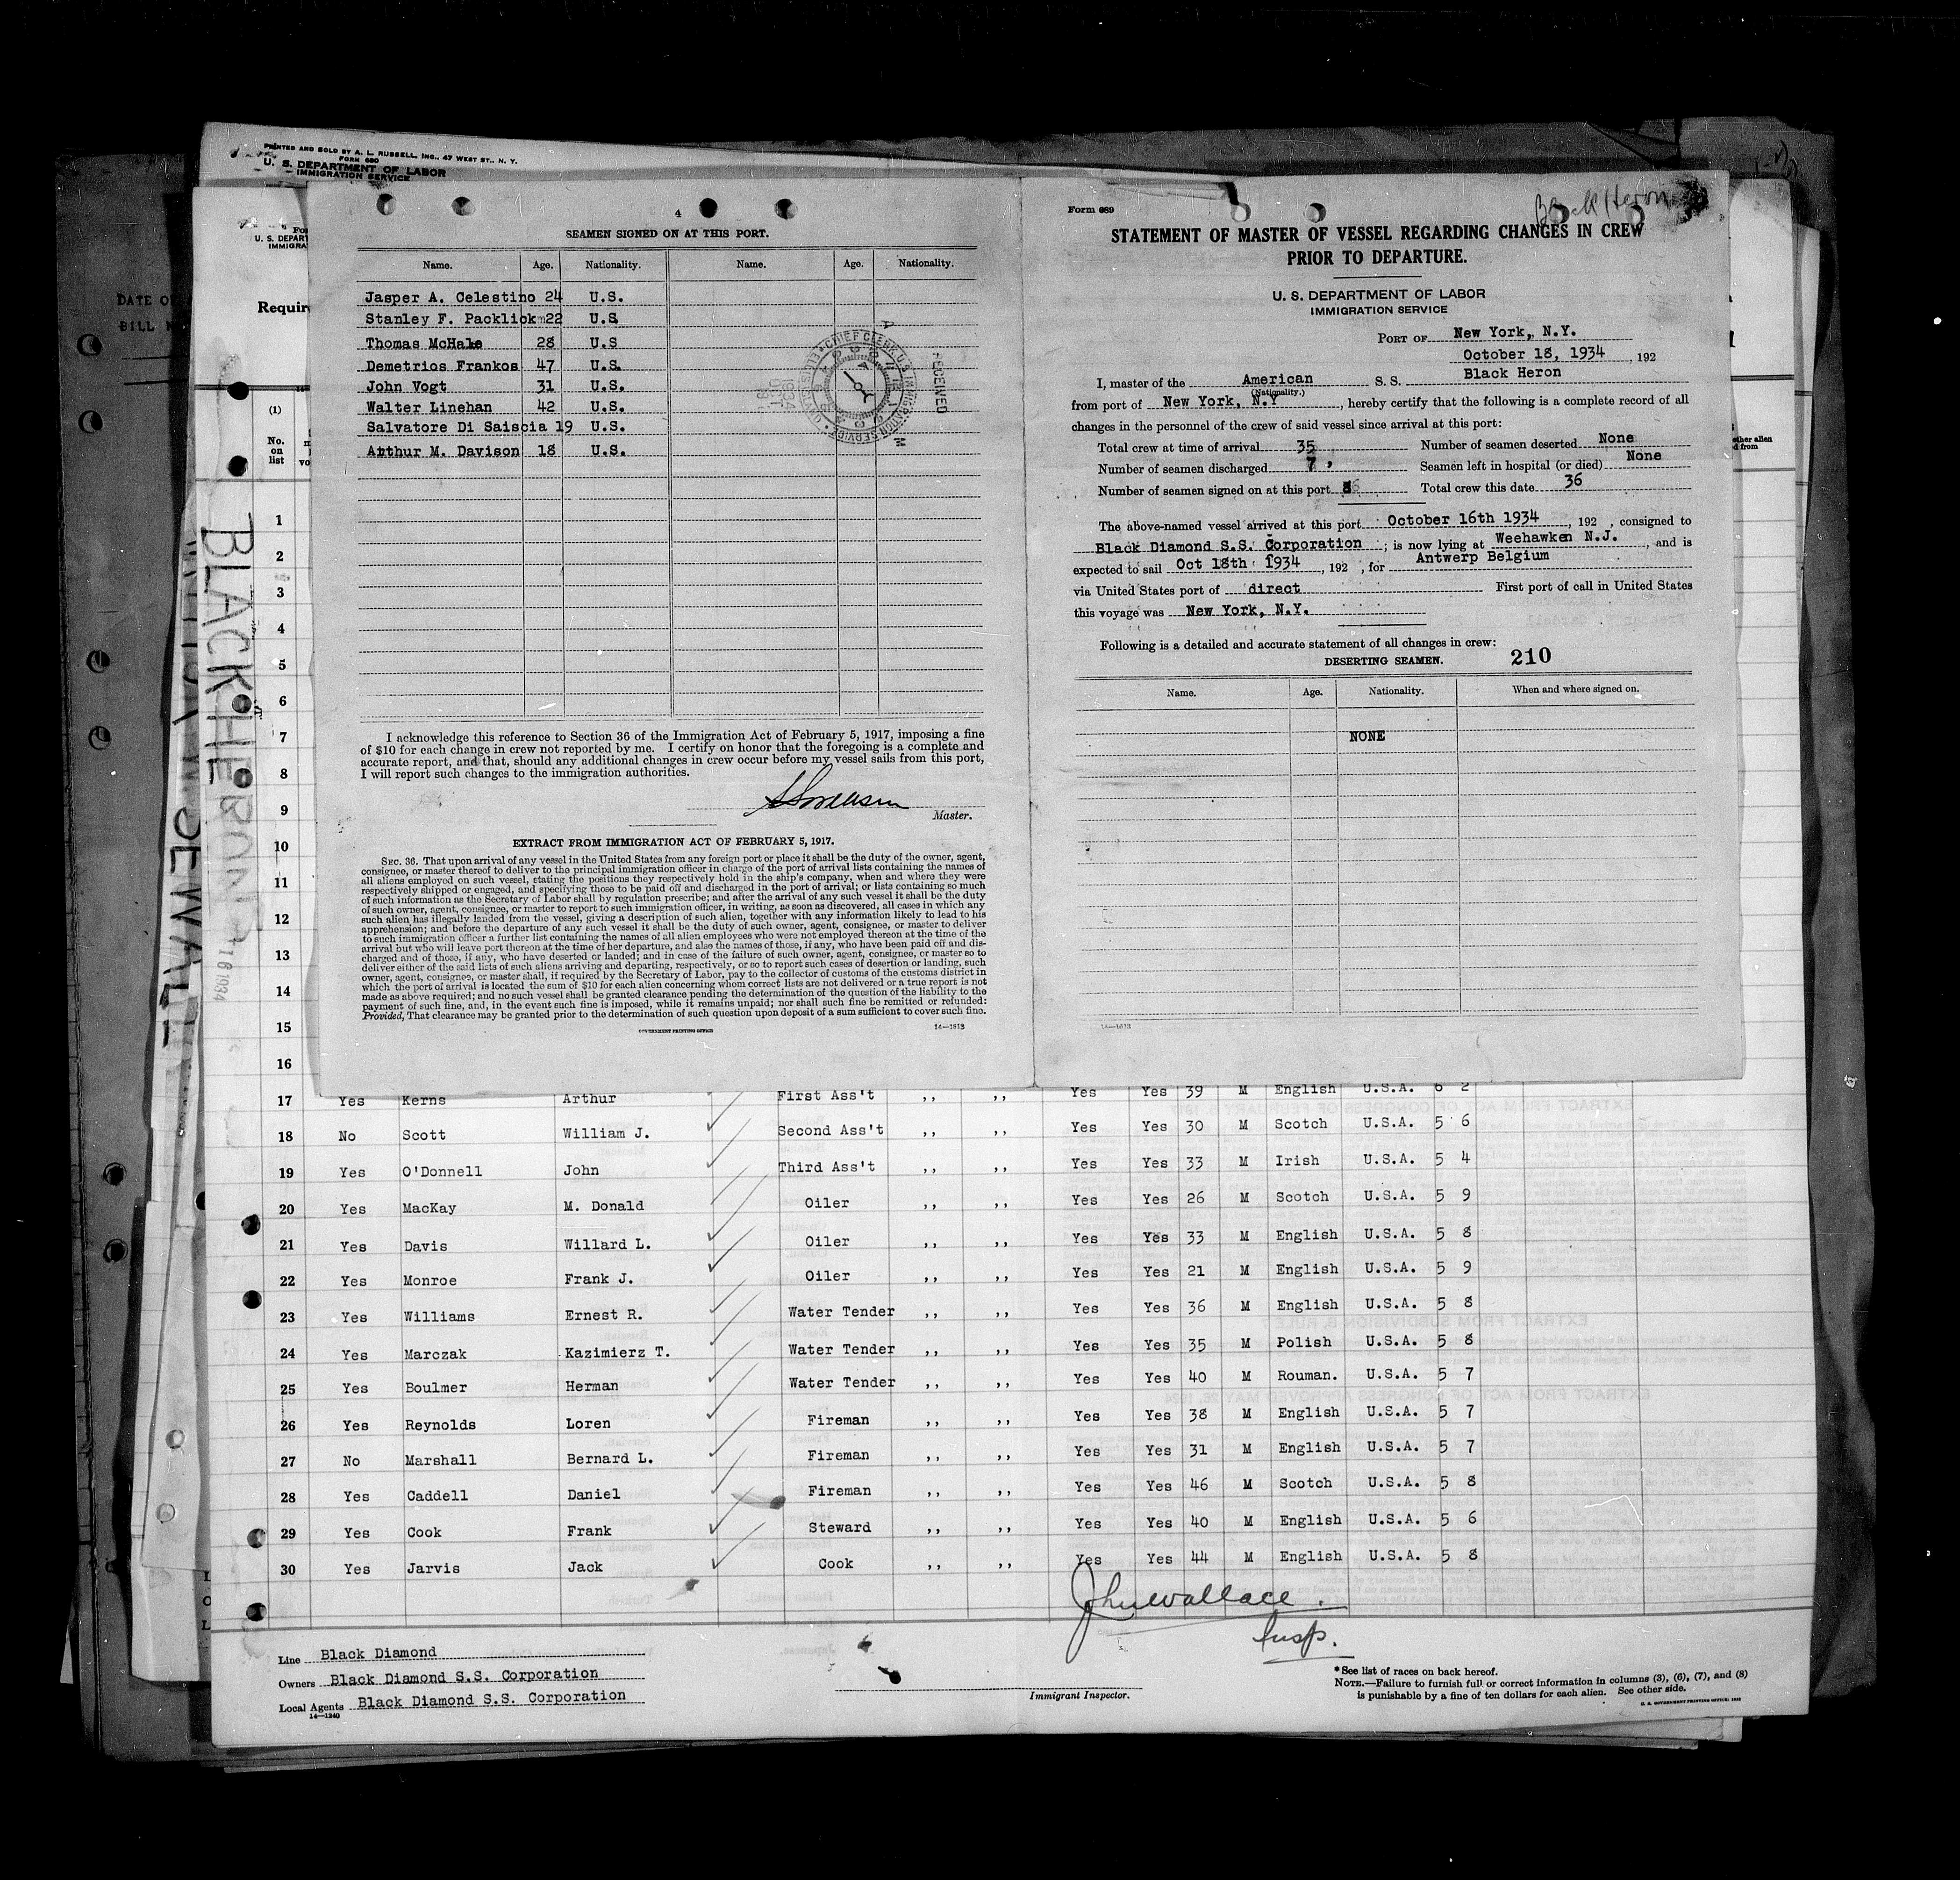 PRINTED AND SOLD BY A. L. RUSSELL, INC., 47 WEST ST., N. Y.
FORM 680
U. S. DEPARTMENT OF LABOR
IMMIGRATION SERVICE
U. S. DEPART
IMMIGRA
DATE O
BILL
Requir
(1)
No.
on
list
BLACK HERON
16 1934
4
SEAMEN SIGNED ON AT THIS PORT.
Name. Age. Nationality. Name. Age. Nationality.
Jasper A. Celestino 24 U.S.
Stanley F. Packlick 22 U.S
Thomas McHale 28 U.S
Demetrios Frankos 47 U.S.
John Vogt 31 U.S.
Walter Linehan 42 U.S.
Salvatore Di Saiscia 19 U.S.
Arthur M. Davison 18 U.S.
CHIEF CLERK U.S. IMMIGRATION SERVICE
RECEIVED
I acknowledge this reference to Section 36 of the Immigration Act of February 5, 1917, imposing a fine
of $10 for each change in crew not reported by me. I certify on honor that the foregoing is a complete and
accurate report, and that, should any additional changes in crew occur before my vessel sails from this port,
I will report such changes to the immigration authorities.
Master.
EXTRACT FROM IMMIGRATION ACT OF FEBRUARY 5, 1917.
SEC. 36. That upon arrival of any vessel in the United States from any foreign port or place it shall be the duty of the owner, agent,
consignee, or master thereof to deliver to the principal immigration officer in charge of the port of arrival lists containing the names of
all aliens employed on such vessel, stating the positions they respectively hold in the ship's company, when and where they were
respectively shipped or engaged, and specifying those to be paid off and discharged in the port of arrival; or lists containing so much
of such information as the Secretary of Labor shall by regulation prescribe; and after the arrival of any such vessel it shall be the duty
of such owner, agent, consignee, or master to report to such immigration officer, in writing, as soon as discovered, all cases in which any
such alien has illegally landed from the vessel, giving a description of such alien, together with any information likely to lead to his
apprehension; and before the departure of any such vessel it shall be the duty of such owner, agent, consignee, or master to deliver
to such immigration officer a further list containing the names of all alien employees who were not employed thereon at the time of the
arrival but who will leave port thereon at the time of her departure, and also the names of those, if any, who have been paid off and dis-
charged and of those, if any, who have deserted or landed; and in case of the failure of such owner, agent, consignee, or master so to
deliver either of the said lists of such aliens arriving and departing, respectively, or so to report such cases of desertion or landing, such
owner, agent, consignee, or master shall, if required by the Secretary of Labor, pay to the collector of customs of the customs district in
which the port of arrival is located the sum of $10 for each alien concerning whom correct lists are not delivered or a true report is not
made as above required; and no such vessel shall be granted clearance pending the determination of the question of the liability to the
payment of such fine, and, in the event such fine is imposed, while it remains unpaid; nor shall such fine be remitted or refunded:
Provided, That clearance may be granted prior to the determination of such question upon deposit of a sum sufficient to cover such fine.
GOVERNMENT PRINTING OFFICE 14—1613
Form 689
Black Heron
STATEMENT OF MASTER OF VESSEL REGARDING CHANGES IN CREW
PRIOR TO DEPARTURE.
U. S. DEPARTMENT OF LABOR
IMMIGRATION SERVICE
PORT OF New York, N.Y.
October 18, 1934 , 192
I, master of the American S. S. Black Heron
(Nationality.)
from port of New York, N.Y , hereby certify that the following is a complete record of all
changes in the personnel of the crew of said vessel since arrival at this port:
Total crew at time of arrival 35 Number of seamen deserted None
Number of seamen discharged 7 Seamen left in hospital (or died) None
Number of seamen signed on at this port 8 Total crew this date 36
The above-named vessel arrived at this port October 16th 1934 , 192 , consigned to
Black Diamond S.S. Corporation ; is now lying at Weehawken N.J. , and is
expected to sail Oct 18th 1934 , 192 , for Antwerp Belgium
via United States port of direct First port of call in United States
this voyage was New York, N.Y.
Following is a detailed and accurate statement of all changes in crew:
DESERTING SEAMEN. 210
Name. Age. Nationality. When and where signed on.
NONE
14—1613
1
2
3
4
5
6
7
8
9
10
11
12
13
14
15
16
17 Yes Kerns Arthur First Ass't ,, ,, Yes Yes 39 M English U.S.A. 6 2
18 No Scott William J. Second Ass't ,, ,, Yes Yes 30 M Scotch U.S.A. 5 6
19 Yes O'Donnell John Third Ass't ,, ,, Yes Yes 33 M Irish U.S.A. 5 4
20 Yes MacKay M. Donald Oiler ,, ,, Yes Yes 26 M Scotch U.S.A. 5 9
21 Yes Davis Willard L. Oiler ,, ,, Yes Yes 33 M English U.S.A. 5 8
22 Yes Monroe Frank J. Oiler ,, ,, Yes Yes 21 M English U.S.A. 5 9
23 Yes Williams Ernest R. Water Tender ,, ,, Yes Yes 36 M English U.S.A. 5 8
24 Yes Marczak Kazimierz T. Water Tender ,, ,, Yes Yes 35 M Polish U.S.A. 5 8
25 Yes Boulmer Herman Water Tender ,, ,, Yes Yes 40 M Rouman. U.S.A. 5 7
26 Yes Reynolds Loren Fireman ,, ,, Yes Yes 38 M English U.S.A. 5 7
27 No Marshall Bernard L. Fireman ,, ,, Yes Yes 31 M English U.S.A. 5 7
28 Yes Caddell Daniel Fireman ,, ,, Yes Yes 46 M Scotch U.S.A. 5 8
29 Yes Cook Frank Steward ,, ,, Yes Yes 40 M English U.S.A. 5 6
30 Yes Jarvis Jack Cook ,, ,, Yes Yes 44 M English U.S.A. 5 8
John Wallace
Insp.
Line Black Diamond
Owners Black Diamond S.S. Corporation
Local Agents Black Diamond S.S. Corporation
14—1240
Immigrant Inspector.
*See list of races on back hereof.
NOTE.—Failure to furnish full or correct information in columns (3), (6), (7), and (8)
is punishable by a fine of ten dollars for each alien. See other side.